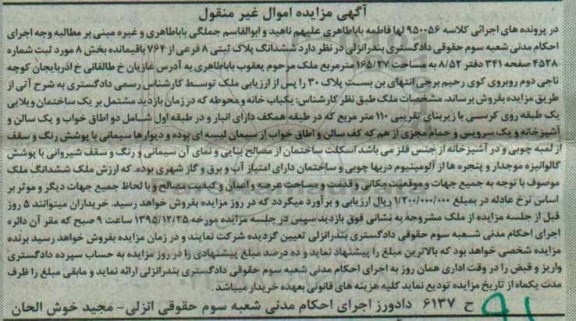 آگهی مزایده اموال غیر منقول
در پرونده های اجرائی کلاسه ۹۵۰۰۵۶ لها فاطمه باباطاهری علیهم ناهید و ابوالقاسم جملگی باباطاهری و غیره مبنی بر مطالبه وجه اجرای
احکام مدنی شعبه سوم حقوقی دادگستری بندرانزلی در نظر دارد ششدانگ پلاک ثبتی ۸ فرعی از ۷۶۴ باقیمانده بخش ۸ مورد ثبت شماره
۴۵۲۸ صفحه ۳۴۱ دفتر ۸/۵۲ به مساحت ۱۶۵/۲۷ مترمربع ملک مرحوم یعقوب باباطاهری به آدرس غازیان خ طالقانی خ آذربایجان کوچه
تاجی دوم روبروی کوی رحیم برجی انتهای بن بست پلاک ۳۰ را پس از ارزیابی ملک توسط کارشناس رسمی دادگستری به شرح آتی از
طریق مزایده بفروش برساند. مشخصات ملک طبق نظر کارشناس: یکباب خانه و محوطه که در زمان بازدید مشتمل بر یک ساختمان ویلایی
یک طبقه روی کرسی با زیربنای تقریبی ۱۱۰ متر مربع که در طبقه همکف دارای انبار و در طبقه اول شامل دو اطاق خواب و یک سالن و
آشپزخانه و یک سرویس و حمام مجزی از هم که کف سالن و اطاق خواب از سیمان لیسه ای بوده و دیوارها سیمانی با پوشش رنگ و سقف
از لمبه چوبی و در آشپزخانه از جنس فلز می باشد اسکلت ساختمان از مصالح بنایی و نمای آن سیمانی و رنگ و سقف شیروانی با پوشش
گالوانیزه موجدار و پنجره ها از آلومینیوم دربها چوبی و ساختمان دارای امتیاز آب و برق و گاز شهری بوده. که ارزش ملک ششدانگ ملک
موصوف با توجه به جمیع جهات و موقعیت مکانی و قدمت و مساحت عرصه و اعیان و کیفیت مصالح و با لحاظ جمیع جهات دیگر و موثر بر
اساس نرخ عادله در بمبلغ ۱/۲۰۰/۰۰۰/۰۰۰ ریال ارزیابی و برآورد میگردد که در روز مزایده بفروش خواهد رسید. خریداران میتوانند ۵ روز
قبل از جلسه مزایده از ملک مشروحه به نشانی فوق بازدید سپس در جلسه مزایده مورخه ۱۳۹۵/۱۲/۲۵ ساعت ۹ صبح که مقر آن دائره
اجرای احکام مدنی شعبه سوم حقوقی دادگستری بندرانزلی تعیین گردیده شرکت نمایند و در زمان مزایده بفروش خواهد رسید برنده
مزایده شخصی خواهد بود که بالاترین مبلغ را پیشنهاد نماید و ده درصد مبلغ پیشنهادی را در روز مزایده به حساب سپرده دادگستری
واریز و قبض را در وقت اداری همان روز به اجرای احکام مدنی شعبه سوم حقوقی دادگستری بندرانزلی ارائه نماید و مابقی مبلغ را ظرف
مدت یکماه از تاریخ مزایده تودیع نماید کلیه هزینه های قانونی بعهده خریدار میباشد.
ح ۶۱۳۷ دادورز اجرای احکام مدنی شعبه سوم حقوقی انزلی- مجید خوش الحان